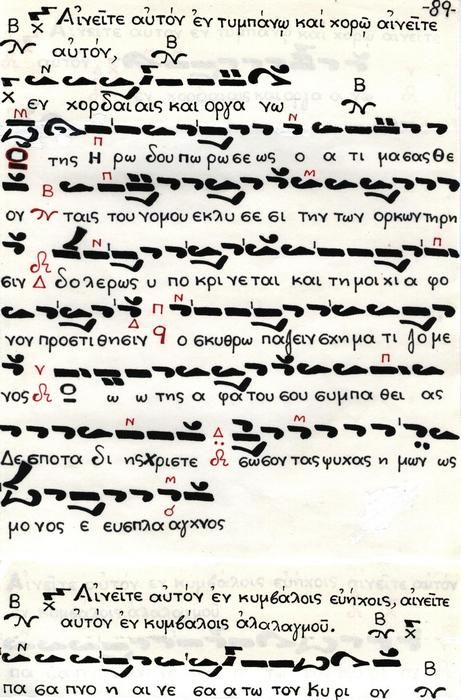 -89-
Β Αἰνεῖτε αὐτόν ἐν τυμπάνῳ καί χορῷ αἰνεῖτε
αὐτόν, Β
Ν
εν χορδαι αις και οργα νω Β
Μ Π Ν
Ο της Η ρω δου πω ρω σε ως ο α τι μα σας θε
Β Π Μ
ον ταις του νομου εκλυ σε σι την των ορκων τηρη
Ν Π
σιν Δ δολερως υ πο κρι νε ται και τη μοι χι α φο
Π Ν
νον προστι θησιν Δ ο σκυθρω πα ζειν σχημα τι ζο με
ν Π
νος ω ω της α φα του σου συμπα θει ας
Ν Δ Μ
Δεσποτα δι ης Χριστε σωσον τας ψυχας η μων ως
Μ
μο νος ε ευσπλα αγχνος
Β Αἰνεῖτε αὐτόν ἐν κυμβάλοις εὐήχοις, αἰνεῖτε
αὐτόν ἐν κυμβάλοις ἀλαλαγμοῦ. Β
Ν Β
πα σα πνο η αι νε σα α τω τον Κυ ρι ον